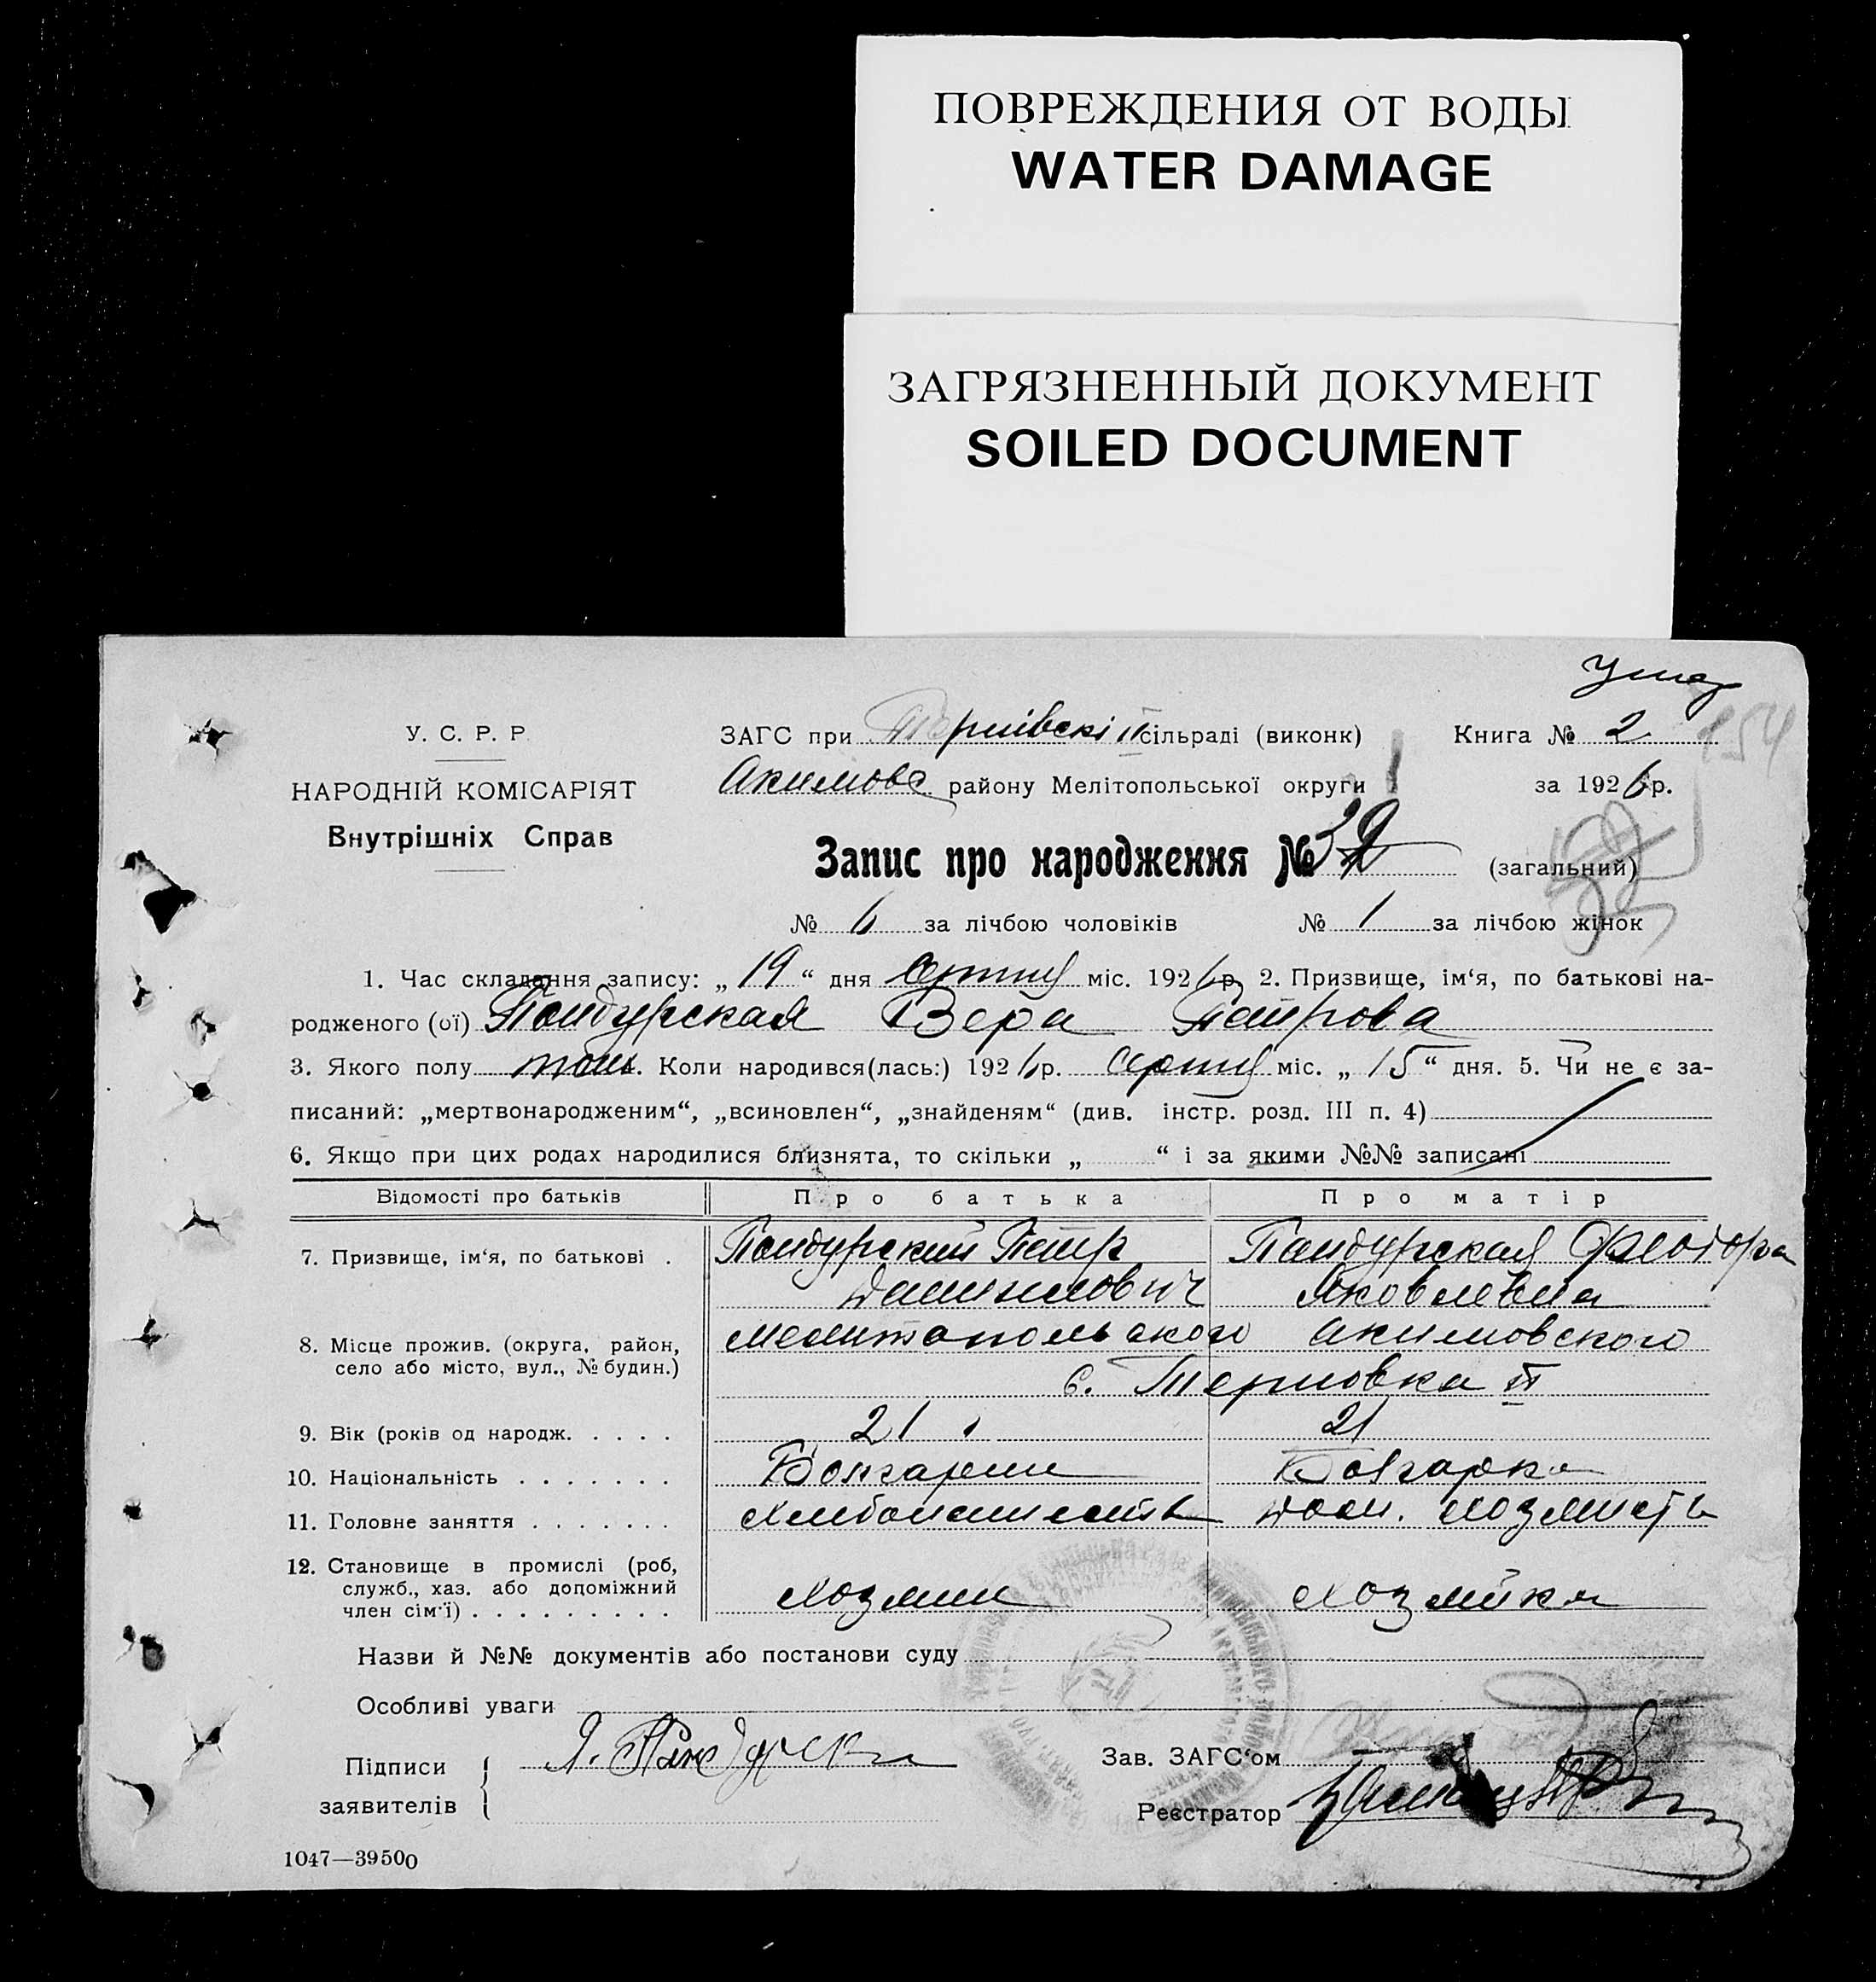 ПОВРЕЖДЕНИЯ ОТ ВОДЫ
WATER DAMAGE
ЗАГРЯЗНЕННЫЙ ДОКУМЕНТ
SOILED DOCUMENT
У. С. Р. Р. ЗАГС при Тернівскі II сільраді (виконк) Книга № 2 154
НАРОДНІЙ КОМІСАРІЯТ Акимовс району Мелітопольської округи за 1926 р.
Внутрішніх Справ
Запис про народження № 32 (загальний)
№ 6 за лічбою чоловіків № 1 за лічбою жінок
1. Час складання запису: „ 19 “ дня серпня міс. 1926 р. 2. Призвище, ім‘я, по батькові на-
родженого (ої) Пандурская Вера Петрова
3. Якого полу 4. Коли народився(лась:) 1926 р. серпня міс. „ 15 “ дня. 5. Чи не є за-
писаний: „мертвонародженим“, „всиновлен“, „знайденям“ (див. інстр. розд. III п. 4)
6. Якщо при цих родах народилися близнята, то скільки „ “ і за якими №№ записані
Відомості про батьків Про батька Про матір
7. Призвище, ім‘я, по батькові . Пандурский Петр Пандурская Феодора
Данилович Яковлевна
8. Місце прожив. (округа, район, Мелитопольского Акимовского
село або місто, вул., № будин.) с. Терновка II
9. Вік (років од народж. . . . . 21 21
10. Національність . . . . . . . Болгарин Болгарка
11. Головне заняття . . . . . . . Дом.
12. Становище в промислі (роб,
служб., хаз. або допоміжний Хозяин Хозяйка
член сім‘ї) . . . . . . . . .
Назви й №№ документів або постанови суду
Особливі уваги
Підписи Зав. ЗАГС‘ом
заявителів Реєстратор
1047—39500